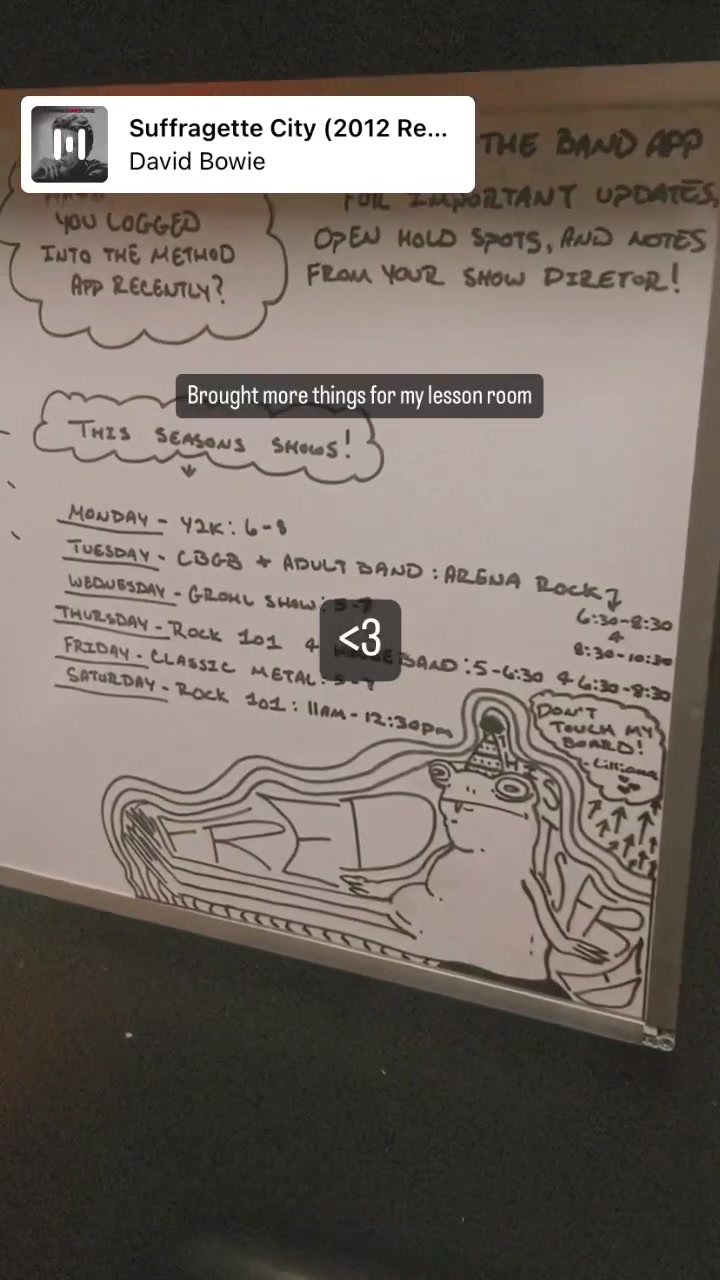 Suffragette City (2012 Re...
David Bowie
THE BAND APP
FOR IMPORTANT UPDATES,
OPEN HOLD SPOTS, AND NOTES
FROM YOUR SHOW DIRETOR!
YOU LOGGED
INTO THE METHOD
APP RECENTLY?
Brought more things for my lesson room
THIS SEASONS SHOWS!
MONDAY - Y2K: 6-8
TUESDAY - CBGB + ADULT BAND: ARENA ROCK
6:30-8:30
+
8:30-10:30
WEDNESDAY - GROHL SHOW: 5-7
THURSDAY - ROCK 101 & BAND: 5-6:30 & 6:30-8:30
<3
FRIDAY - CLASSIC METAL: 5-7
SATURDAY - ROCK 101: 11AM - 12:30PM
DON'T
TOUCH MY
BOARD!
- Lilliana